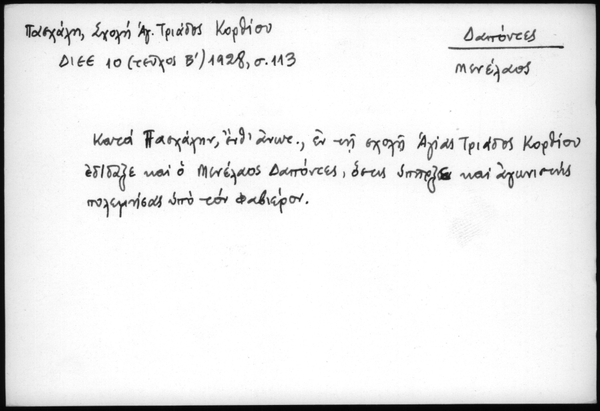 Πασχάλη, Σχολή Ἁγ. Τριάδος Κορθίου
ΔΙΕΕ 10 (τεῦχος Β') 1928, σ. 113
Δαπόντες
Μενέλαος
Κατά Πασχάλην, ἔνθ' ἄνωτ., ἐν τῇ σχολῇ Ἁγίας Τριάδος Κορθίου
ἐδίδαξε καί ὁ Μενέλαος Δαπόντες, ὅστις ὑπῆρξε καί ἀγωνιστής
πολεμήσας ὑπό τόν Φαβιέρον.